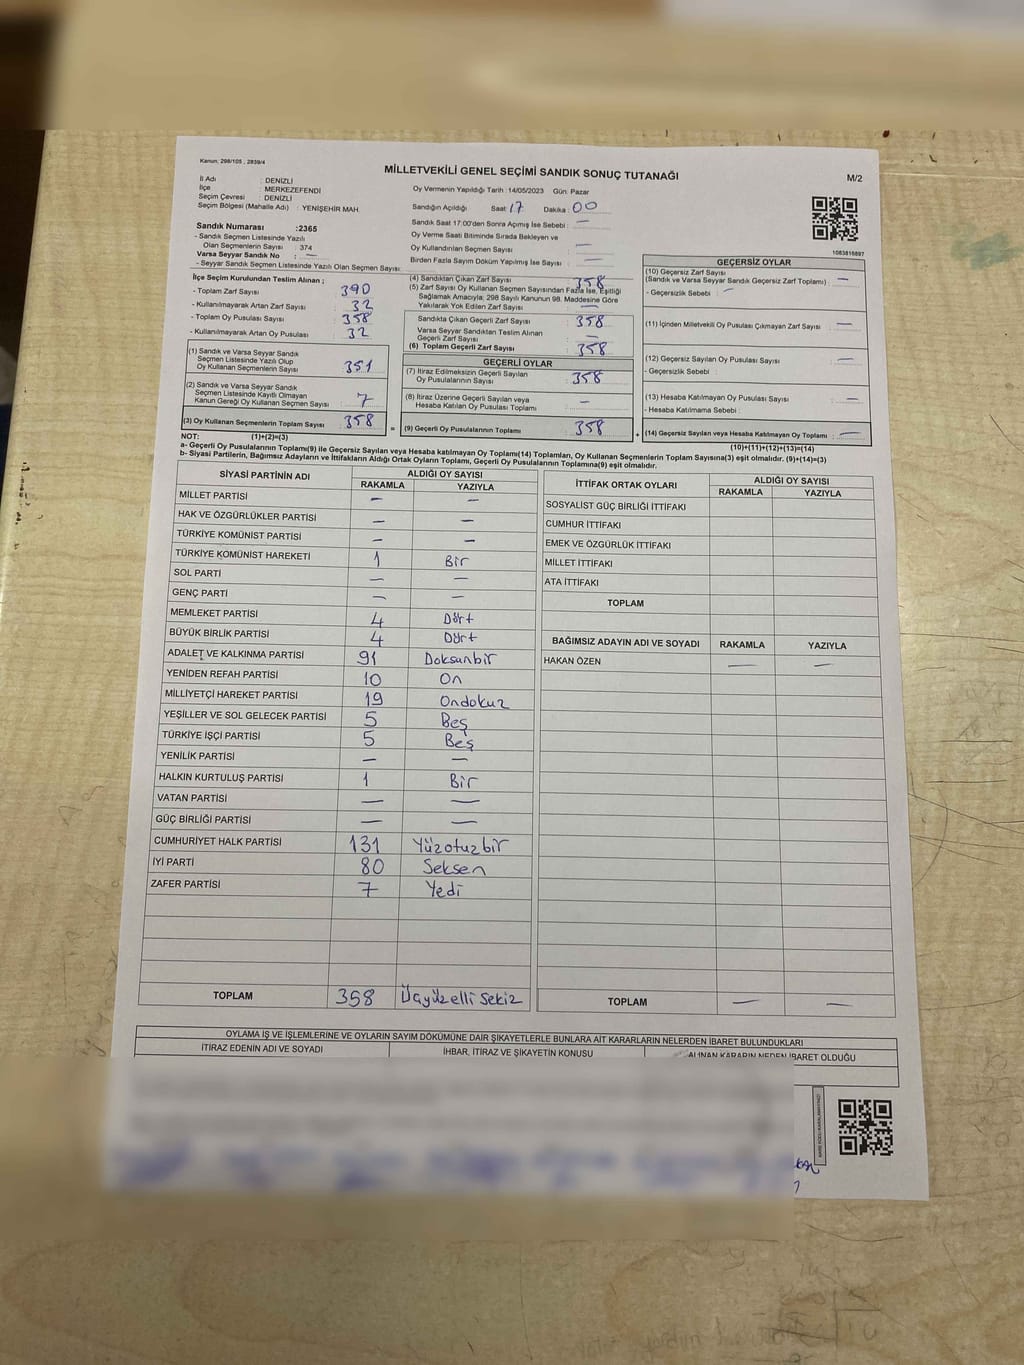 Kanun: 298/105 , 2839/4
MİLLETVEKİLİ GENEL SEÇİMİ SANDIK SONUÇ TUTANAĞI
M/2
İl Adı : DENİZLİ
İlçe : MERKEZEFENDİ
Seçim Çevresi : DENİZLİ
Seçim Bölgesi (Mahalle Adı) : YENİŞEHİR MAH.
Oy Vermenin Yapıldığı Tarih : 14/05/2023 Gün: Pazar
Sandığın Açıldığı Saat: 17 Dakika : 00
Sandık Saat 17:00'den Sonra Açımış İse Sebebi : —
Oy Verme Saati Bitiminde Sırada Bekleyen ve
Oy Kullandırılan Seçmen Sayısı : —
Birden Fazla Sayım Döküm Yapılmış İse Sayısı : —
1083815897
Sandık Numarası :2365
- Sandık Seçmen Listesinde Yazılı
Olan Seçmenlerin Sayısı : 374
Varsa Seyyar Sandık No : —
- Seyyar Sandık Seçmen Listesinde Yazılı Olan Seçmen Sayısı:
İlçe Seçim Kurulundan Teslim Alınan ;
- Toplam Zarf Sayısı : 390
- Kullanılmayarak Artan Zarf Sayısı : 32
- Toplam Oy Pusulası Sayısı : 358
- Kullanılmayarak Artan Oy Pusulası : 32
(1) Sandık ve Varsa Seyyar Sandık
Seçmen Listesinde Yazılı Olup
Oy Kullanan Seçmenlerin Sayısı : 351
(2) Sandık ve Varsa Seyyar Sandık
Seçmen Listesinde Kayıtlı Olmayan
Kanun Gereği Oy Kullanan Seçmen Sayısı : 7
(3) Oy Kullanan Seçmenlerin Toplam Sayısı : 358
(4) Sandıktan Çıkan Zarf Sayısı : 358
(5) Zarf Sayısı Oy Kullanan Seçmen Sayısından Fazla İse, Eşitliği
Sağlamak Amacıyla; 298 Sayılı Kanunun 98. Maddesine Göre
Yakılarak Yok Edilen Zarf Sayısı : —
Sandıkta Çıkan Geçerli Zarf Sayısı : 358
Varsa Seyyar Sandıktan Teslim Alınan
Geçerli Zarf Sayısı : —
(6) Toplam Geçerli Zarf Sayısı : 358
GEÇERLİ OYLAR
(7) İtiraz Edilmeksizin Geçerli Sayılan
Oy Pusulalarının Sayısı : 358
(8) İtiraz Üzerine Geçerli Sayılan veya
Hesaba Katılan Oy Pusulası Toplamı : —
= (9) Geçerli Oy Pusulalarının Toplamı : 358
GEÇERSİZ OYLAR
(10) Geçersiz Zarf Sayısı
(Sandık ve Varsa Seyyar Sandık Geçersiz Zarf Toplamı) : —
- Geçersizlik Sebebi : —
(11) İçinden Milletvekili Oy Pusulası Çıkmayan Zarf Sayısı : —
(12) Geçersiz Sayılan Oy Pusulası Sayısı : —
- Geçersizlik Sebebi :
(13) Hesaba Katılmayan Oy Pusulası Sayısı : —
- Hesaba Katılmama Sebebi :
+ (14) Geçersiz Sayılan veya Hesaba Katılmayan Oy Toplamı : —
NOT: (1)+(2)=(3)
(10)+(11)+(12)+(13)=(14)
a- Geçerli Oy Pusulalarının Toplamı(9) ile Geçersiz Sayılan veya Hesaba katılmayan Oy Toplamı(14) Toplamları, Oy Kullanan Seçmenlerin Toplam Sayısına(3) eşit olmalıdır. (9)+(14)=(3)
b- Siyasi Partilerin, Bağımsız Adayların ve İttifakların Aldığı Ortak Oyların Toplamı, Geçerli Oy Pusulalarının Toplamına(9) eşit olmalıdır.
SİYASİ PARTİNİN ADI ALDIĞI OY SAYISI
RAKAMLA YAZIYLA
MİLLET PARTİSİ — —
HAK VE ÖZGÜRLÜKLER PARTİSİ — —
TÜRKİYE KOMÜNİST PARTİSİ — —
TÜRKİYE KOMÜNİST HAREKETİ 1 Bir
SOL PARTİ — —
GENÇ PARTİ — —
MEMLEKET PARTİSİ 4 Dört
BÜYÜK BİRLİK PARTİSİ 4 Dört
ADALET VE KALKINMA PARTİSİ 91 Doksanbir
YENİDEN REFAH PARTİSİ 10 On
MİLLİYETÇİ HAREKET PARTİSİ 19 Ondokuz
YEŞİLLER VE SOL GELECEK PARTİSİ 5 Beş
TÜRKİYE İŞÇİ PARTİSİ 5 Beş
YENİLİK PARTİSİ — —
HALKIN KURTULUŞ PARTİSİ 1 Bir
VATAN PARTİSİ — —
GÜÇ BİRLİĞİ PARTİSİ — —
CUMHURİYET HALK PARTİSİ 131 Yüzotuzbir
İYİ PARTİ 80 Seksen
ZAFER PARTİSİ 7 Yedi
TOPLAM 358 Üçyüzelli sekiz
İTTİFAK ORTAK OYLARI ALDIĞI OY SAYISI
RAKAMLA YAZIYLA
SOSYALİST GÜÇ BİRLİĞİ İTTİFAKI
CUMHUR İTTİFAKI
EMEK VE ÖZGÜRLÜK İTTİFAKI
MİLLET İTTİFAKI
ATA İTTİFAKI
TOPLAM
BAĞIMSIZ ADAYIN ADI VE SOYADI RAKAMLA YAZIYLA
HAKAN ÖZEN — —
TOPLAM — —
OYLAMA İŞ VE İŞLEMLERİNE VE OYLARIN SAYIM DÖKÜMÜNE DAİR ŞİKAYETLERLE BUNLARA AİT KARARLARIN NELERDEN İBARET BULUNDUKLARI
İTİRAZ EDENİN ADI VE SOYADI İHBAR, İTİRAZ VE ŞİKAYETİN KONUSU ALINAN KARARIN NEDEN İBARET OLDUĞU